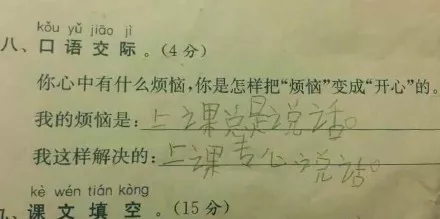 kǒu yǔ jiāo jì
八、口语交际。(4分)
你心中有什么烦恼,你是怎样把“烦恼”变成“开心”的。
我的烦恼是:上课总是说话。
我这样解决的:上课专心说话。
kè wén tián kòng
课文填空。(15分)